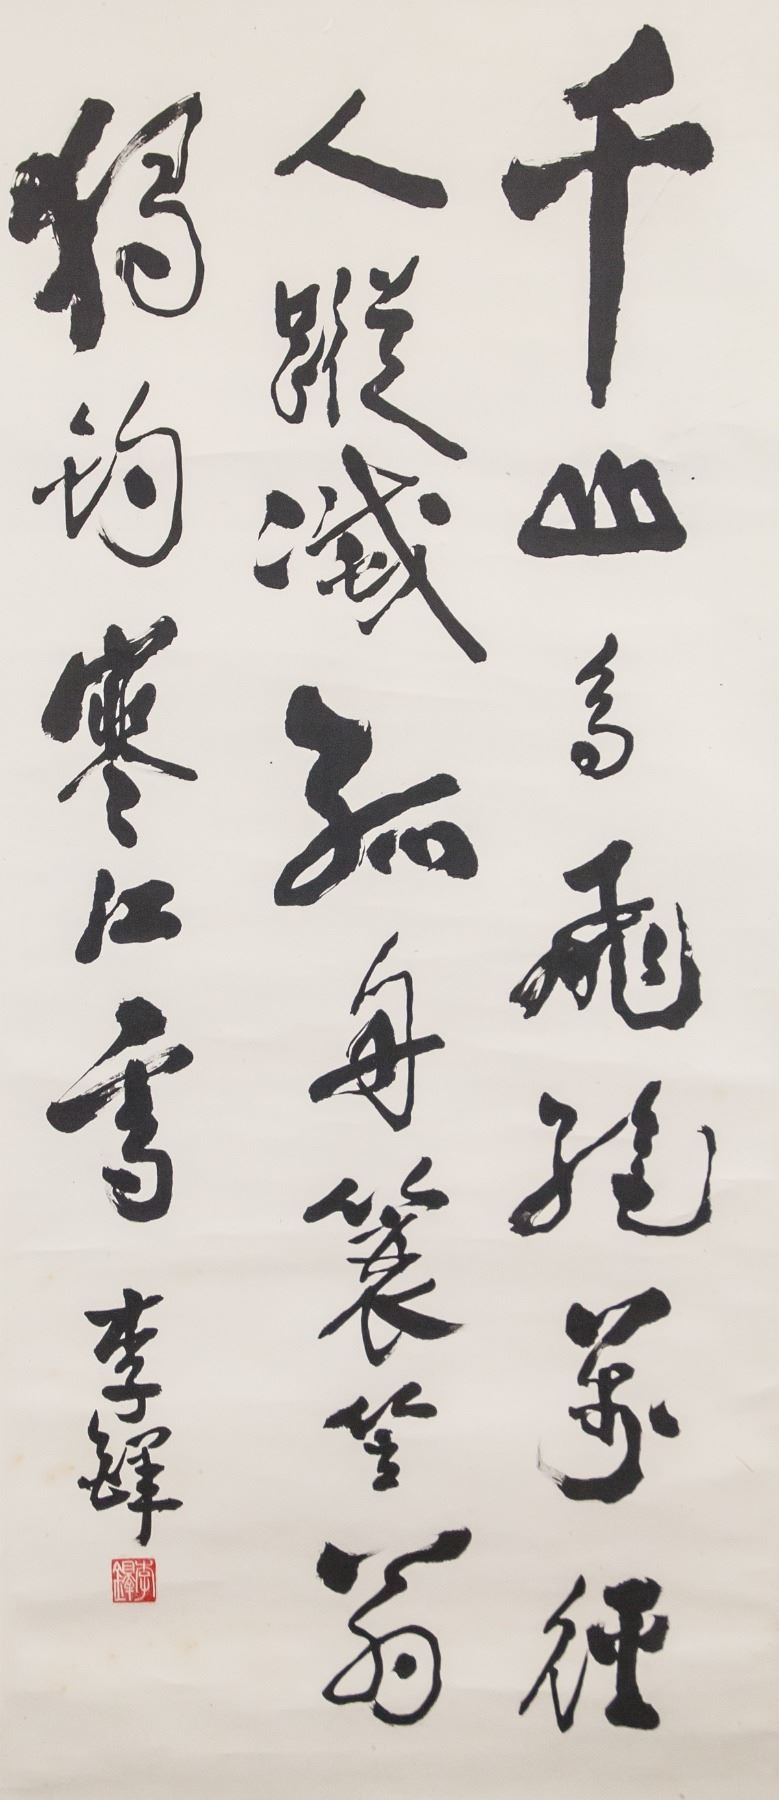 千山鳥飛絕萬徑
人蹤滅孤舟簑笠翁
獨釣寒江雪 李鐸
李鐸